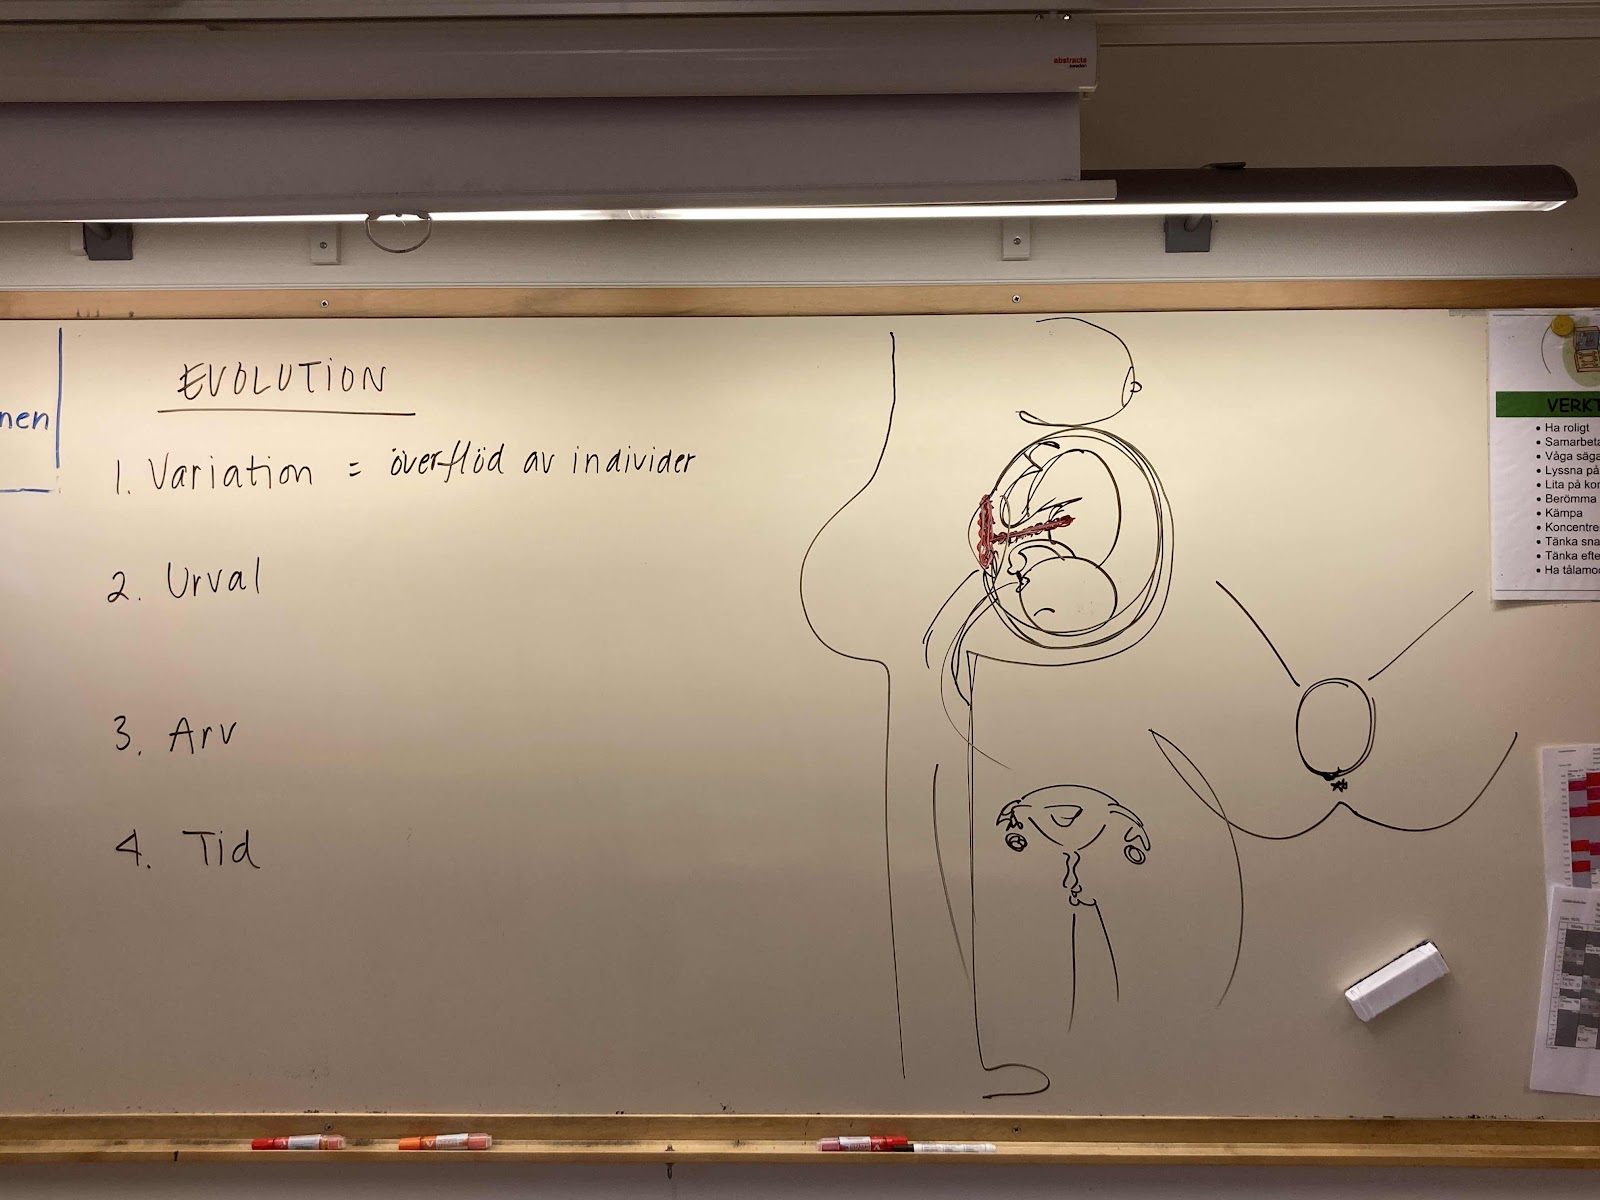 abstracta
nen
EVOLUTION
1. Variation = överflöd av individer
2. Urval
3. Arv
4. Tid
VERKT
• Ha roligt
• Samarbeta
• Våga säga
• Lyssna på
• Lita på kom
• Berömma
• Kämpa
• Koncentre
• Tänka sna
• Tänka efte
• Ha tålamod